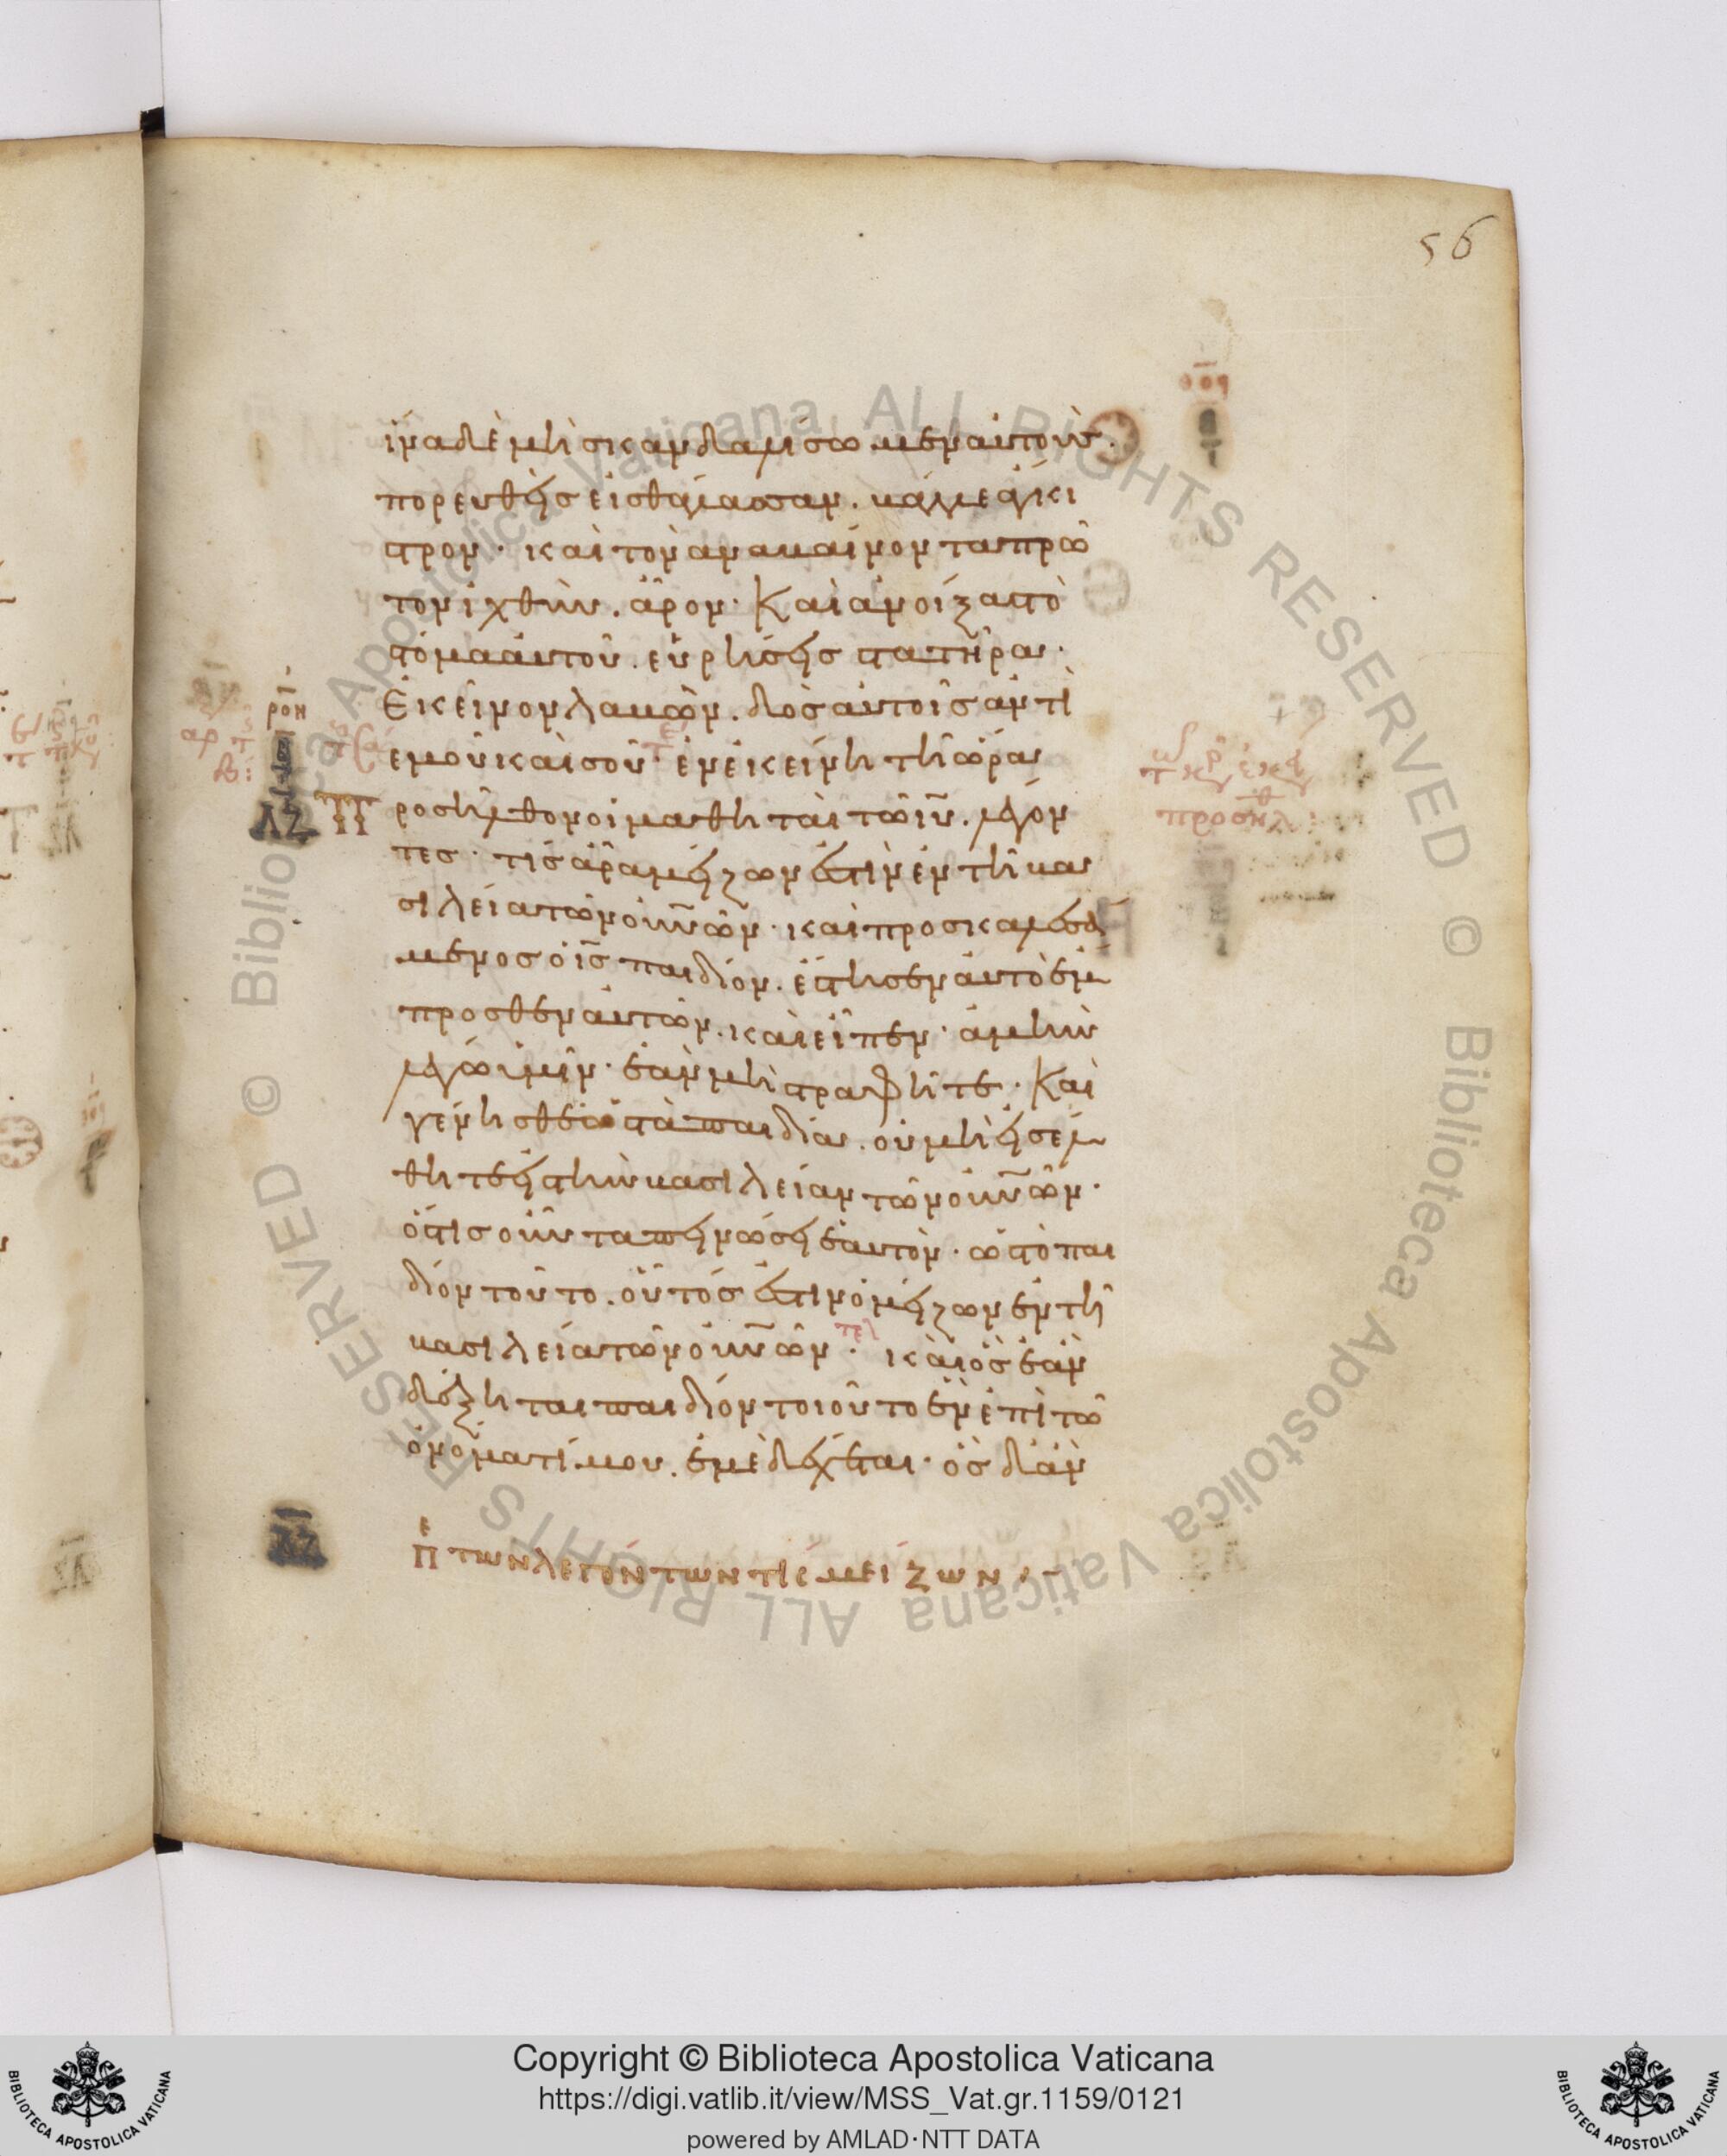 56
ἵνα δὲ μὴ σκανδαλίσωμεν αὐτούς·
πορευθεὶς εἰς θάλασσαν. βάλε ἄγκι
στρον· καὶ τὸν ἀναβαίνοντα πρῶ
τον ἰχθὺν. ἆρον· Καὶ ἀνοίξας τὸ
στόμα αὐτοῦ. εὑρήσεις στατῆρα·
Ἐκεῖνον λαβὼν. δὸς αὐτοῖς ἀντὶ
ἐμοῦ καὶ σοῦ· ἐν ἐκείνη τῆ ὥρα
Προσῆλθον οἱ μαθηταὶ τῶ ιῦ. λέγον
τες· τίς ἄρα μείζων ἐστὶν ἐν τῆ βα
σιλεία τῶν οὐνῶν· καὶ προσκαλεσά
μενος ὁ ις παιδίον. ἔστησεν αὐτὸ ἐν μ
προσθεν αὐτῶν. καὶ εἶπεν· ἀμὴν
λέγω ὑμῖν· ἐὰν μὴ στραφῆτε· Καὶ
γένησθε ὡς τὰ παιδία. οὐ μὴ εἰσέλ
θητε εἰς τὴν βασιλείαν τῶν οὐνῶν·
ὅστις οὖν ταπεινώσει ἑαυτὸν· ὡς τὸ παι
δίον τοῦτο. οὗτός ἐστιν ὁ μείζων ἐν τῆ
βασιλεία τῶν οὐνῶν· καὶ ὃς ἐὰν
δέξηται παιδίον τοιοῦτο ἓν ἐπὶ τῶ
ὀνόματί μου. ἐμὲ δέχεται· ὃς δ' ἂν
ΛΖ
Πε των λεγόντων τίς μείζων
Copyright © Biblioteca Apostolica Vaticana
https://digi.vatlib.it/view/MSS_Vat.gr.1159/0121
powered by AMLAD·NTT DATA
BIBLIOTECA APOSTOLICA VATICANA
BIBLIOTECA APOSTOLICA VATICANA